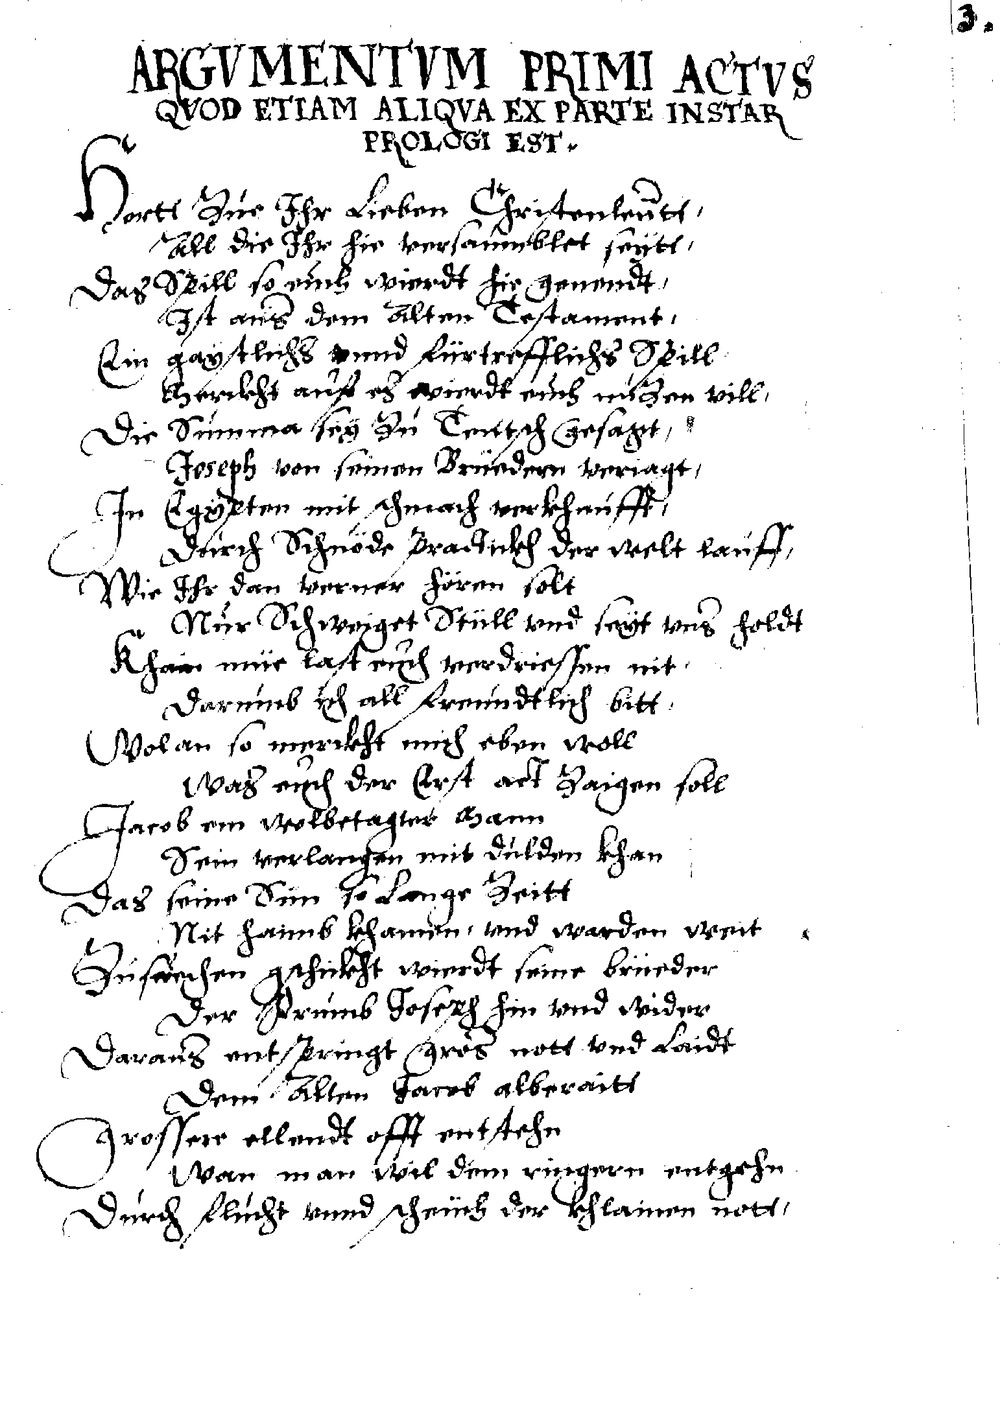 3.
ARGVMENTVM PRIMI ACTVS
QVOD ETIAM ALIQVA EX PARTE INSTAR
PROLOGI EST.
Hortt Zue Ihr Lieben Christenleütt,
All die Ihr hie versaumblet seÿtt,
Das Spill so euch wierdt hie genendt,
Ist aus dem Alten Testament,
Ein gaystlichs vnnd fürtrefflichs Spill
Merckht auf es wierdt euch nuzen vill,
Die Summa seÿ Zu Teutsch gesagt,
Joseph von seinen Brüedern veriagt,
In Egypten mit schmach verkhaufft,
Durch Schnöde Practickh der welt lauff,
Wie Ihr dan verner hören solt
Nur Schweiget Stüll vnd seyt vns holdt
Khain müe last euch verdriessen nit
Darumb ich all freundtlich bitt,
Wolan so merckht mich eben woll
Was euch der Erst act Zaigen soll
Jacob ein wolbetagter Mann
Sein verlangen mit dulden khan
Das seine Sün so Lange Zeitt
Nit haimb khamen, vnd warden weit
Zusuechen gschickht wierdt seine brüeder
Der Frumb Joseph hin vnd wider
Daraus entspringt gros nott vnd Laidt
Dem Alten Jacob alberaitt
Grossere ellendt offt entstehn
Wan man wil dem ringern entgehn
Durch flucht vnnd scheüch der khlainen nott,